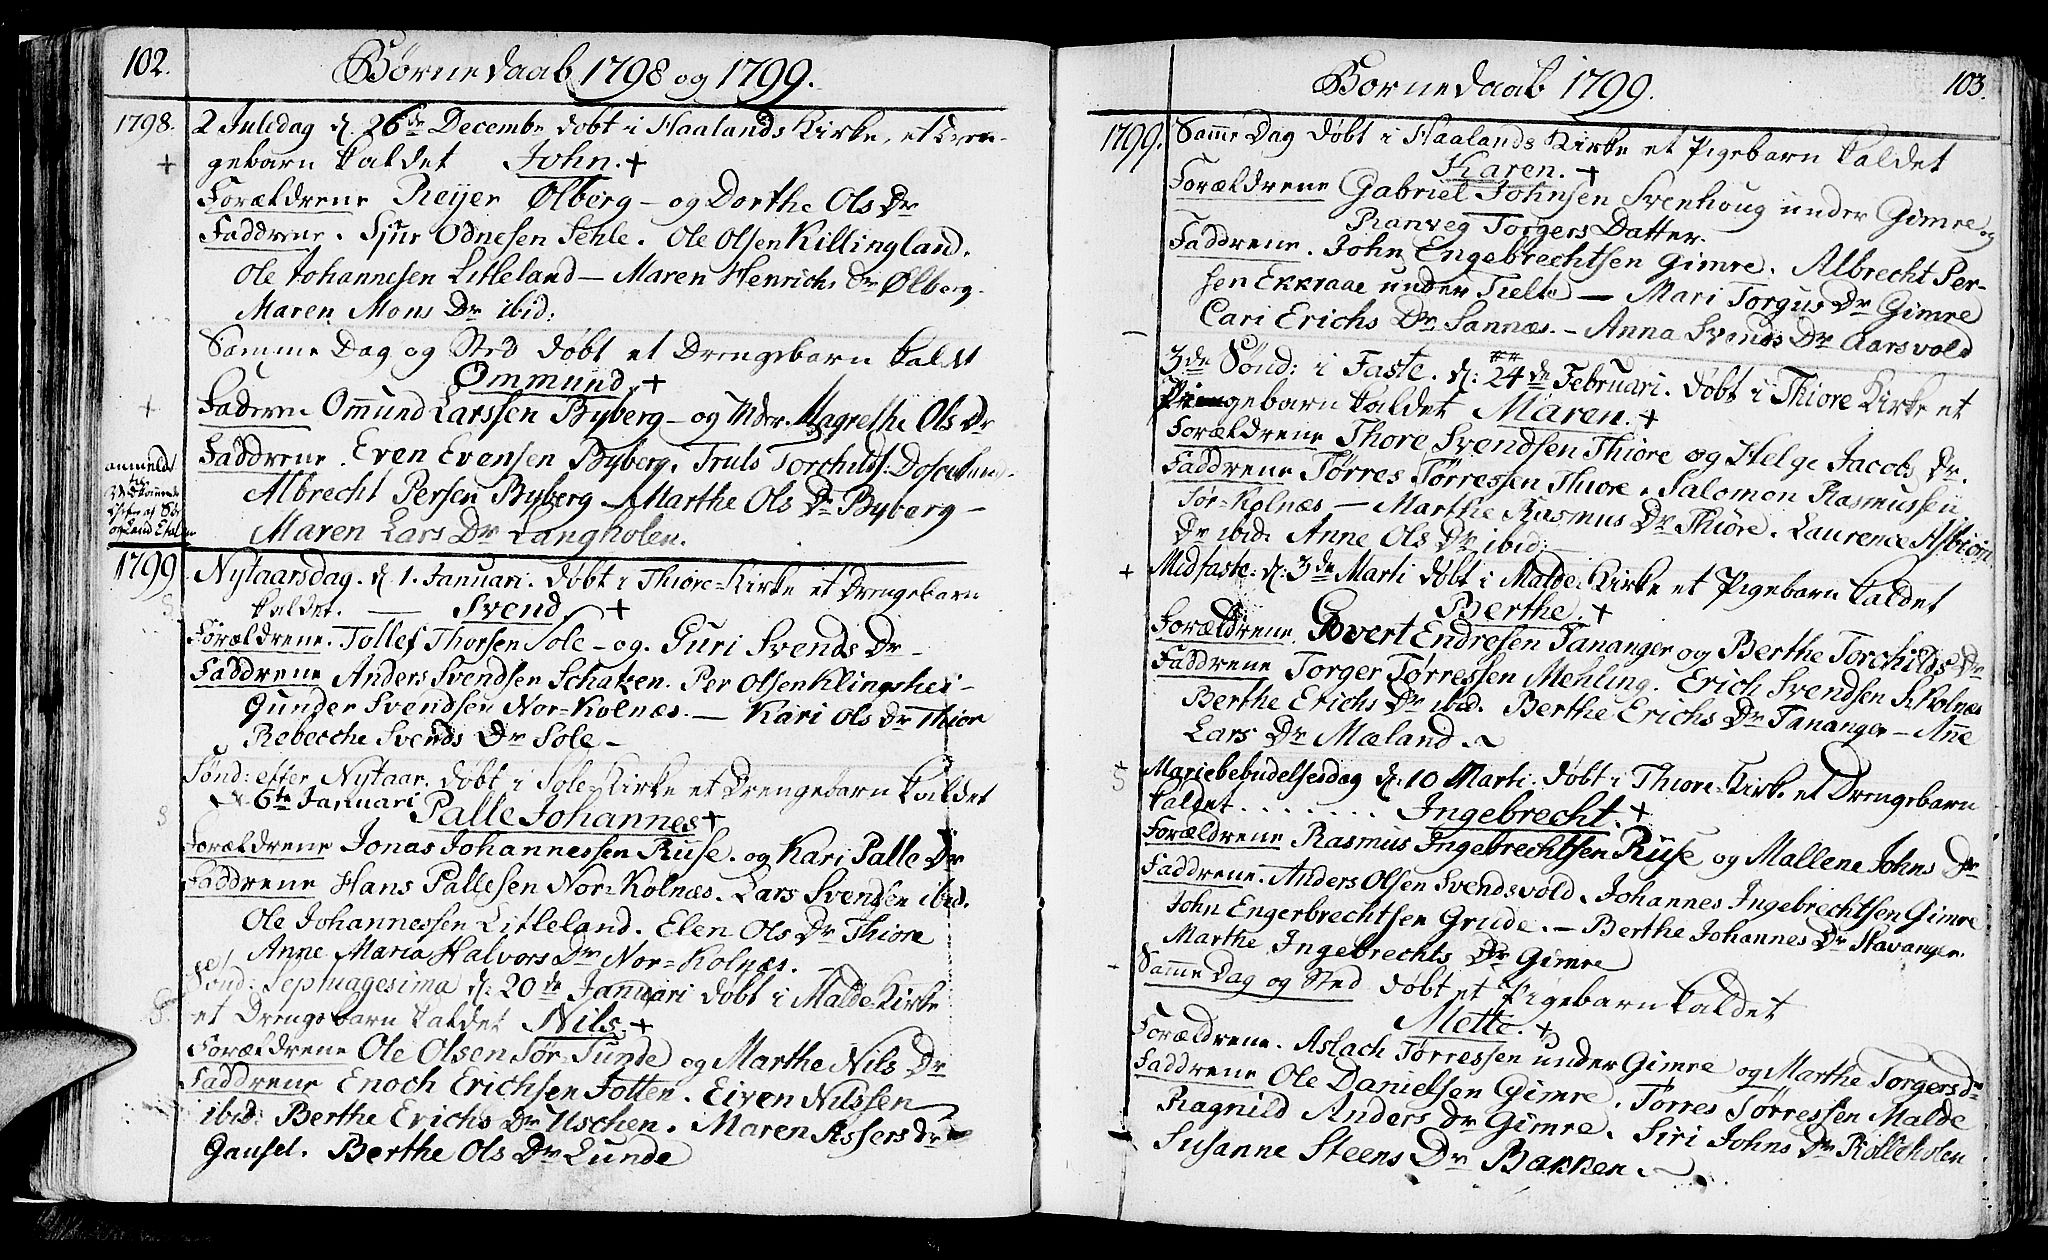 102.
Børnedaab 1798 og 1799.
1798.
2 Juledag d. 26de Decembr døbt i Haalands Kirke, et Dren-
gebarn kaldet John. +
Forældrene Reijer Ølberg - og Dorthe Ols Dr
Faddrene. Sjur Odnesen Sehle. Ole Olsen Killingland.
Ole Johannesen Litleland - Maren Henrichs Dr Ølberg.
Maren Mons Dr ibid:
Samme Dag og Sted døbt et Drengebarn kaldt
Ommund +
Faderen Omund Larssen Byberg - og Mdr. Magrethe Ols Dr
Faddrene. Even Evensen Byberg. Truls Torchilds:
Albrecht Persen Byberg - Marthe Ols Dr Byberg -
Maren Lars Dr Langholen.
anmeldt
til
1799
Nytaarsdag. d. 1. Januari. døbt i Thiore-Kirke et Drengebarn
kaldet. — Svend +
Forældrene. Tollef Thorsen Sole - og. Guri Svends Dr -
Faddrene Anders Svendsen Schatzen. Per Olsen Klingshei -
Gunder Svendsen Nor-Kolnæs. - Kari Ols Dr Thior
Rebecche Svends Dr Sole -
Sønd: efter Nytaar. døbt i Sole-Kirke et Drengebarn kaldet
d. 6te Januari Palle Johannes +
Forældrene Jonas Johannessen Ruse. og Kari Palle Dr
Faddrene Hans Pallesen Nor-Kolnæs. Lars Svendsen ibid.
Ole Johannessen Litleland. Elen Ols Dr Thiore
Anne Maria Halvors Dr Nor-Kolnæs. -
Sønd: Septuagesima d: 20de Januari døbt i Malde-Kirke
et Drengebarn kaldet Nils. +
Forældrene Ole Olsen Sør-Sunde og Marthe Nils Dr
Faddrene Enoch Erichsen Jotten. Eiven Nilssen
ibid: Berthe Erichs Dr Uschen. Maren Assers dr
Gausel. Berthe Ols Dr Lunde
Børnedaab 1799.
103.
1799.
Samme Dag døbt i Haalands Kirke et Pigebarn kaldet
Karen. +
Forældrene Gabriel Johnsen Svenhoug under Gimre og
Ranveg Torgers Datter.
Faddrene. John Engebrechtsen Gimre. Albrecht Per-
sen Ekkraae under Tielte - Mari Torgus Dr Gimre
Cari Erichs Dr Sannæs. - Anna Svends Dr Aarsvold
3de Sønd: i Faste. d: 24de Februari. døbt i Thiore Kirke et
Pigebarn kaldet Maren. +
Forældrene Thore Svendsen Thiore og Helge Jacobs Dr.
Faddrene Tørres Tørressen Thiore. Salomon Rasmussen
Sør-Kolnæs - Marthe Rasmus Dr Thiore. Laurence Asbiørn
Dr ibid. Anne Ols Dr ibid:
Midfaste: d: 3de Marti døbt i Malde-Kirke et Pigebarn kaldet
Berthe. +
Forældrene. Govert Endresen Tananger og Berthe Torchilds Dr
Faddrene Torger Tørressen Mehling. Erich Svendsen S. Kolnæs
Berthe Erichs Dr ibid. Berthe Erichs Dr Tananger - Anne
Lars Dr Mæland.
Mariebebudelsesdag d: 10 Marti. døbt i Thiore-Kirke et Drengebarn
kaldet. . . . . . . Ingebrecht. +
Forældrene Rasmus Ingebrechtsen Ruse og Mallene Johns Dr
Faddrene. Anders Olsen Svendsvold. Johannes Ingebrechtsen Gimre
John Engerbrechtsen Grude. - Berthe Johannes Dr Stavanger
Marthe Ingebrechts Dr Gimre
Samme Dag og Sted døbt et Pigebarn kaldet
Mette. +
Forældrene. Aslach Tørressen under Gimre og Marthe Torgers dr
Faddrene Ole Danielsen Gimre. Tørres Tørressen Malde
Ragnild Anders Dr Gimre. Siri Johns Dr Rølleholen
Susanne Steens Dr Bakken.